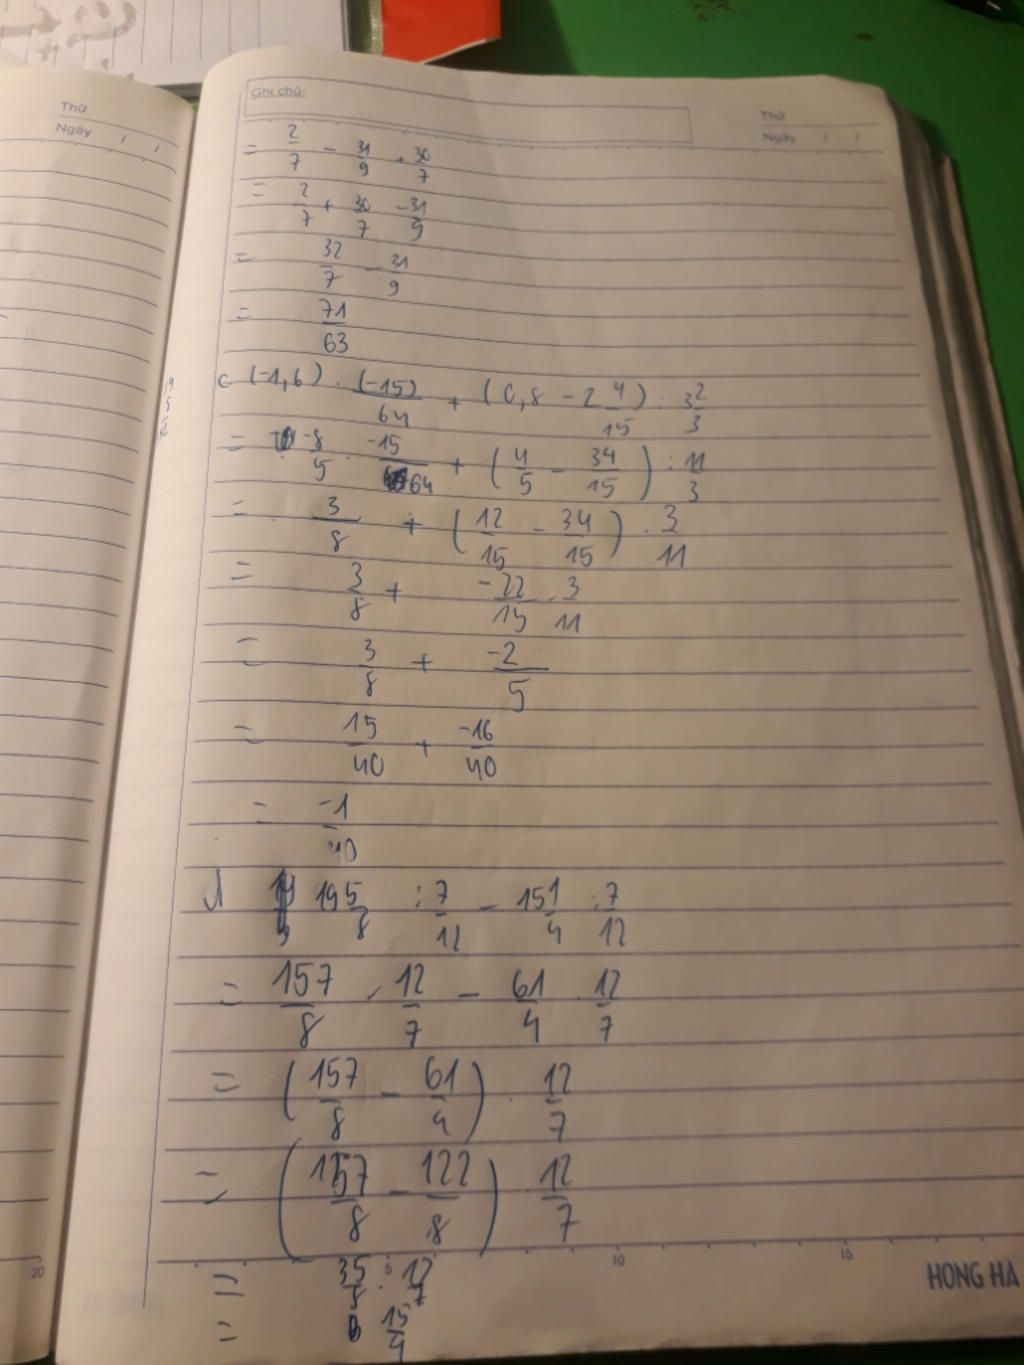 Ghi chú:
Thứ
Ngày / /
Thứ
Ngày / /
= 2/7 - 31/9 + 30/7
= 2/7 + 30/7 - 31/9
= 32/7 - 31/9
= 71/63
c (-1,6) . (-15)/64 + (0,8 - 2 4/15) : 3 2/3
= -8/5 . -15/64 + (4/5 - 34/15) : 11/3
= 3/8 + (12/15 - 34/15) . 3/11
= 3/8 + -22/15 . 3/11
= 3/8 + -2/5
= 15/40 + -16/40
= -1/40
d 19 5/8 : 7/12 - 15 1/4 : 7/12
= 157/8 . 12/7 - 61/4 . 12/7
= (157/8 - 61/4) . 12/7
= (157/8 - 122/8) . 12/7
= 35/8 . 12/7
= 15/
20
5 10 15
HONG HA